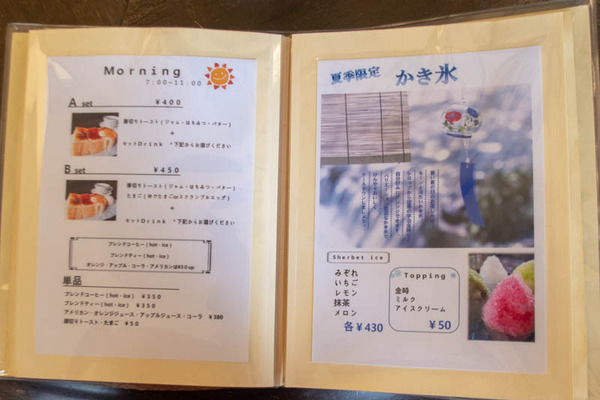 Morning
7:00~11:00
A set ¥400
厚切りトースト(ジャム・はちみつ・バター)
+
セットDrink *下記からお選びください
B set ¥450
厚切りトースト(ジャム・はちみつ・バター)
たまご(ゆでたまごorスクランブルエッグ)
+
セットDrink *下記からお選びください
ブレンドコーヒー(hot・ice)
ブレンドティー(hot・ice)
オレンジ・アップル・コーラ・アメリカンは¥30up
単品
ブレンドコーヒー(hot・ice) ¥350
ブレンドティー(hot・ice) ¥350
アメリカン・オレンジジュース・アップルジュース・コーラ ¥380
厚切りトースト・たまご ¥50
夏季限定 かき氷
Sherbet ice
みぞれ
いちご
レモン
抹茶
メロン
各¥430
Topping
金時
ミルク
アイスクリーム
¥50